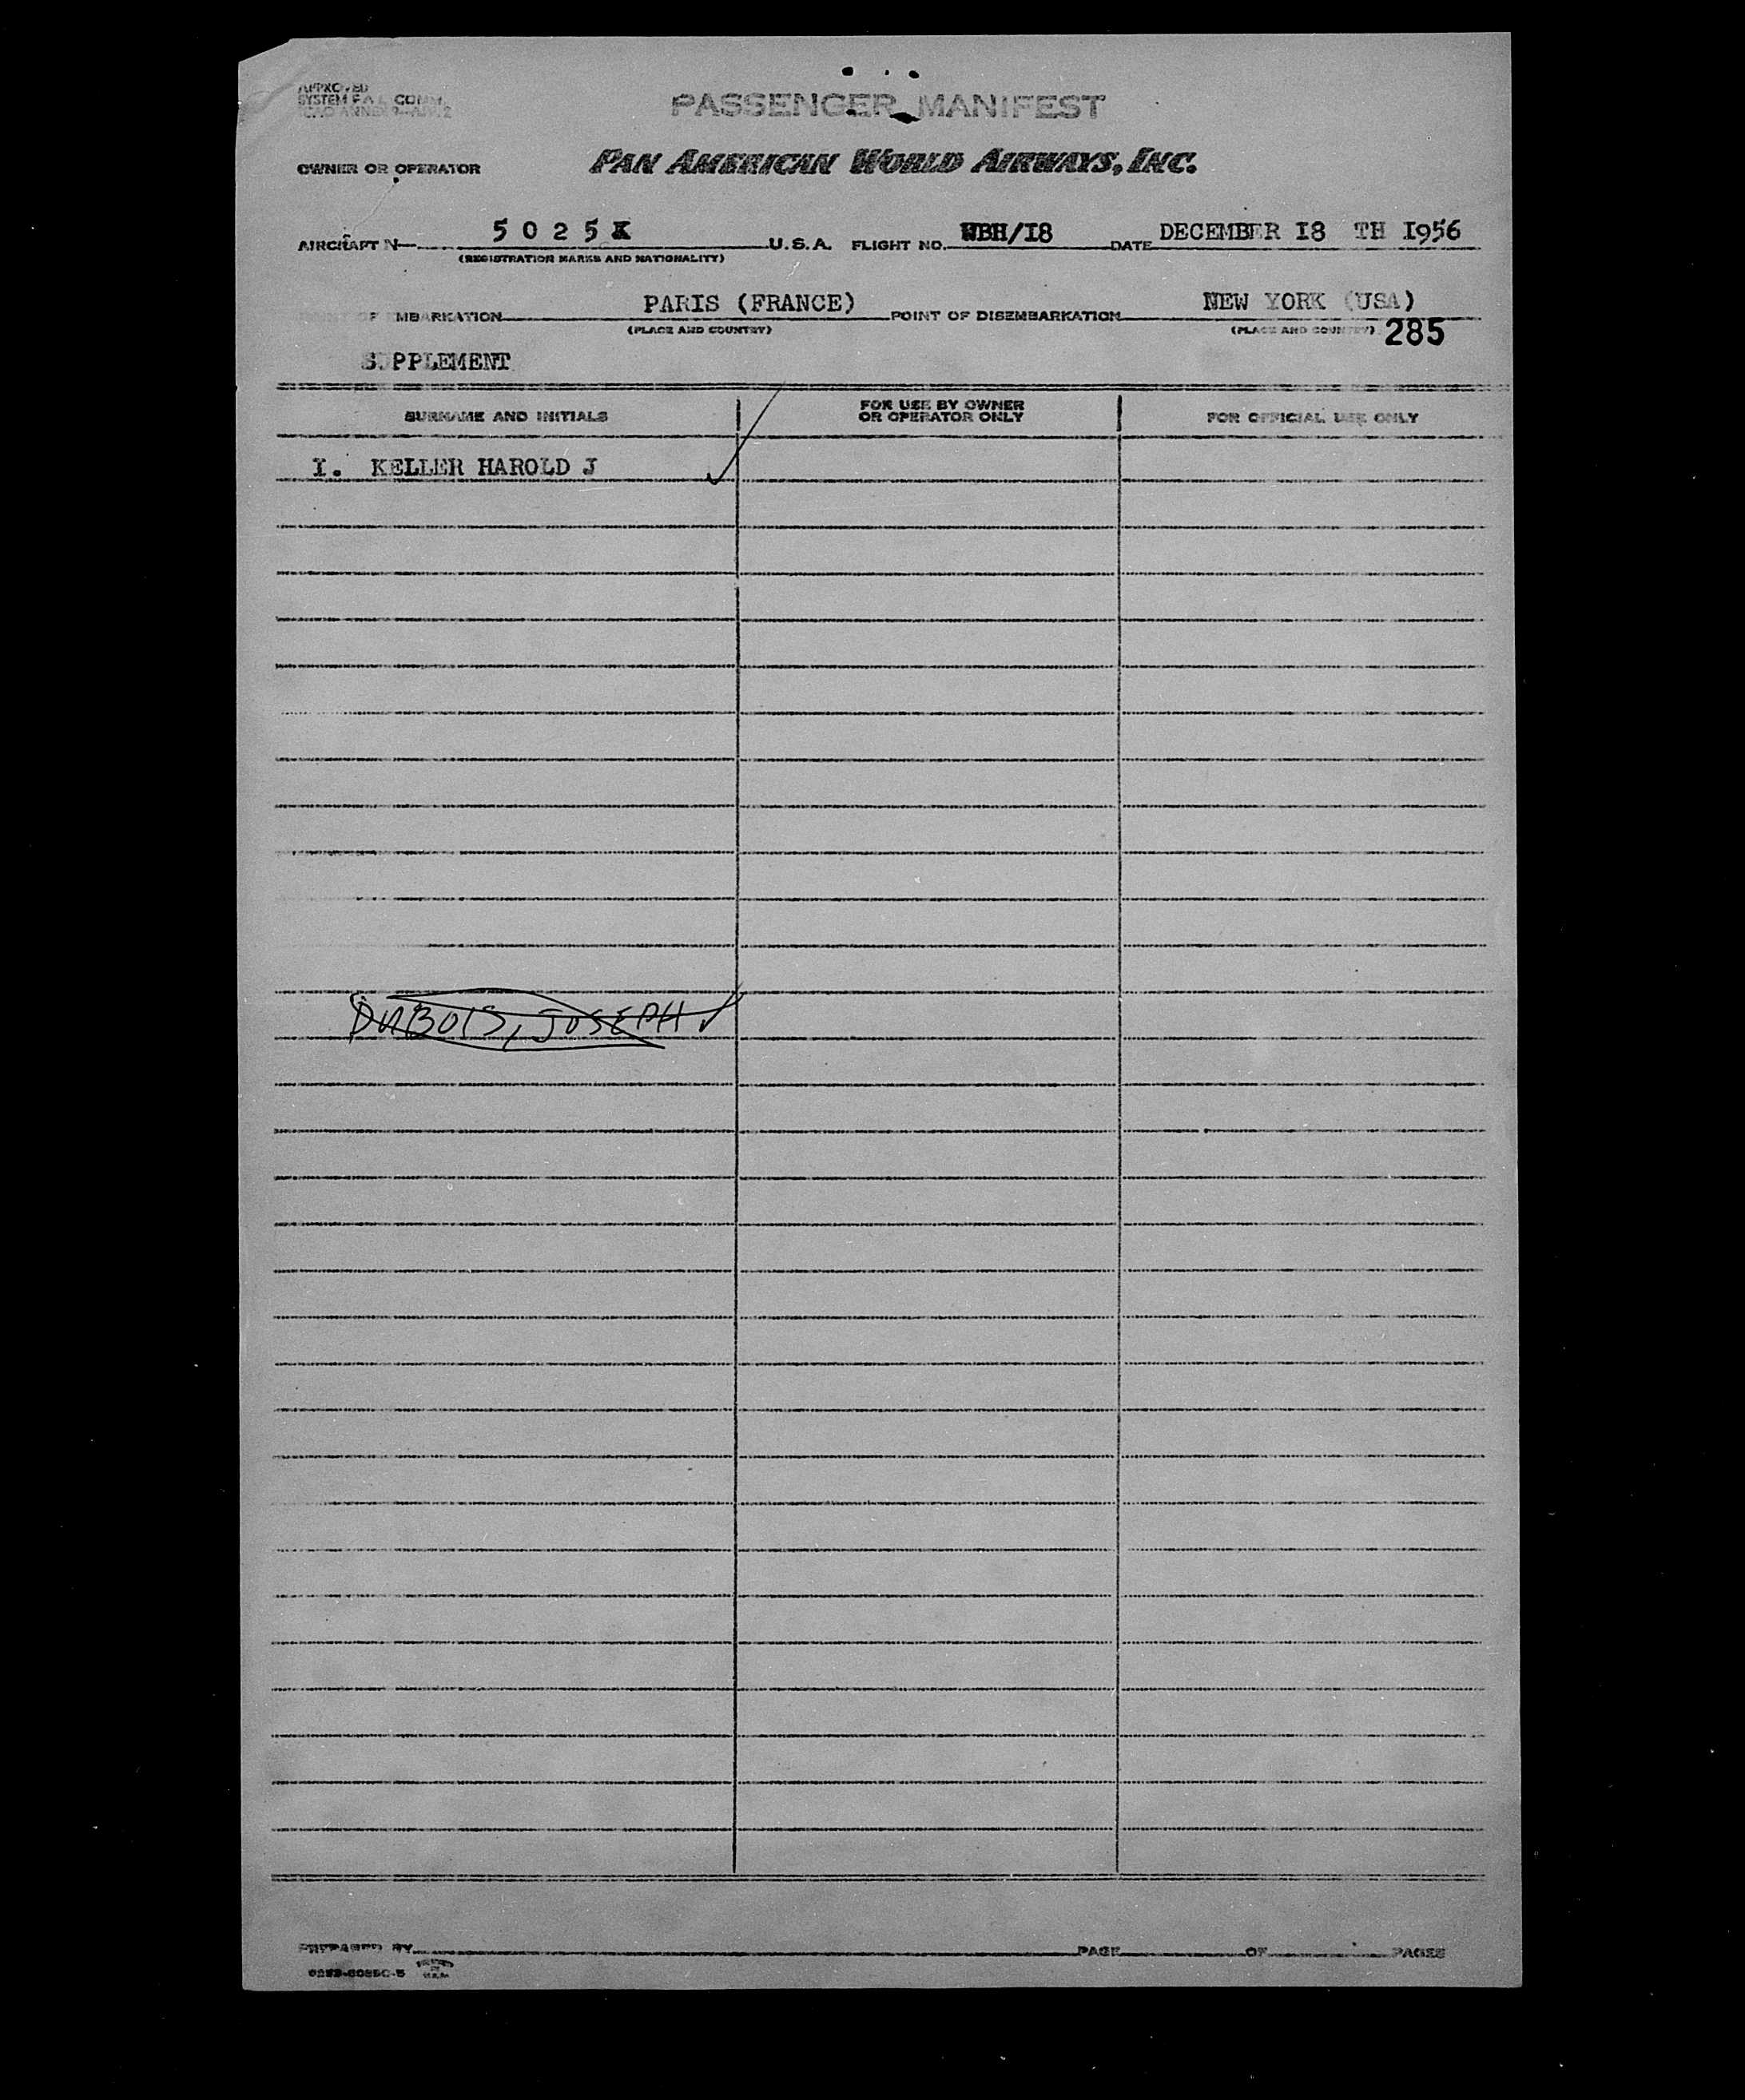 APPROVED
SYSTEM F.A.L. COMM.
PASSENGER MANIFEST
OWNER OR OPERATOR PAN AMERICAN WORLD AIRWAYS, INC.
AIRCRAFT N— 5 0 2 5 K U.S.A. FLIGHT NO. WBH/I8 DATE DECEMBER I8 TH I956
(REGISTRATION MARKS AND NATIONALITY)
POINT OF EMBARKATION PARIS (FRANCE) POINT OF DISEMBARKATION NEW YORK (USA)
(PLACE AND COUNTRY) (PLACE AND COUNTRY) 285
SUPPLEMENT
SURNAME AND INITIALS FOR USE BY OWNER OR OPERATOR ONLY FOR OFFICIAL USE ONLY
I. KELLER HAROLD J
DUBOIS, JOSEPH
PREPARED BY PAGE OF PAGES
PRINTED IN U.S.A.